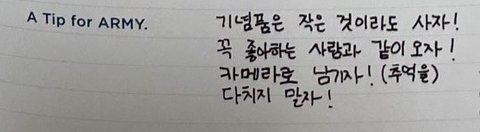 A Tip for ARMY.
기념품은 작은 것이라도 사자!
꼭 좋아하는 사람과 같이 오자!
카메라로 남기자! (추억을)
다치지 말자!